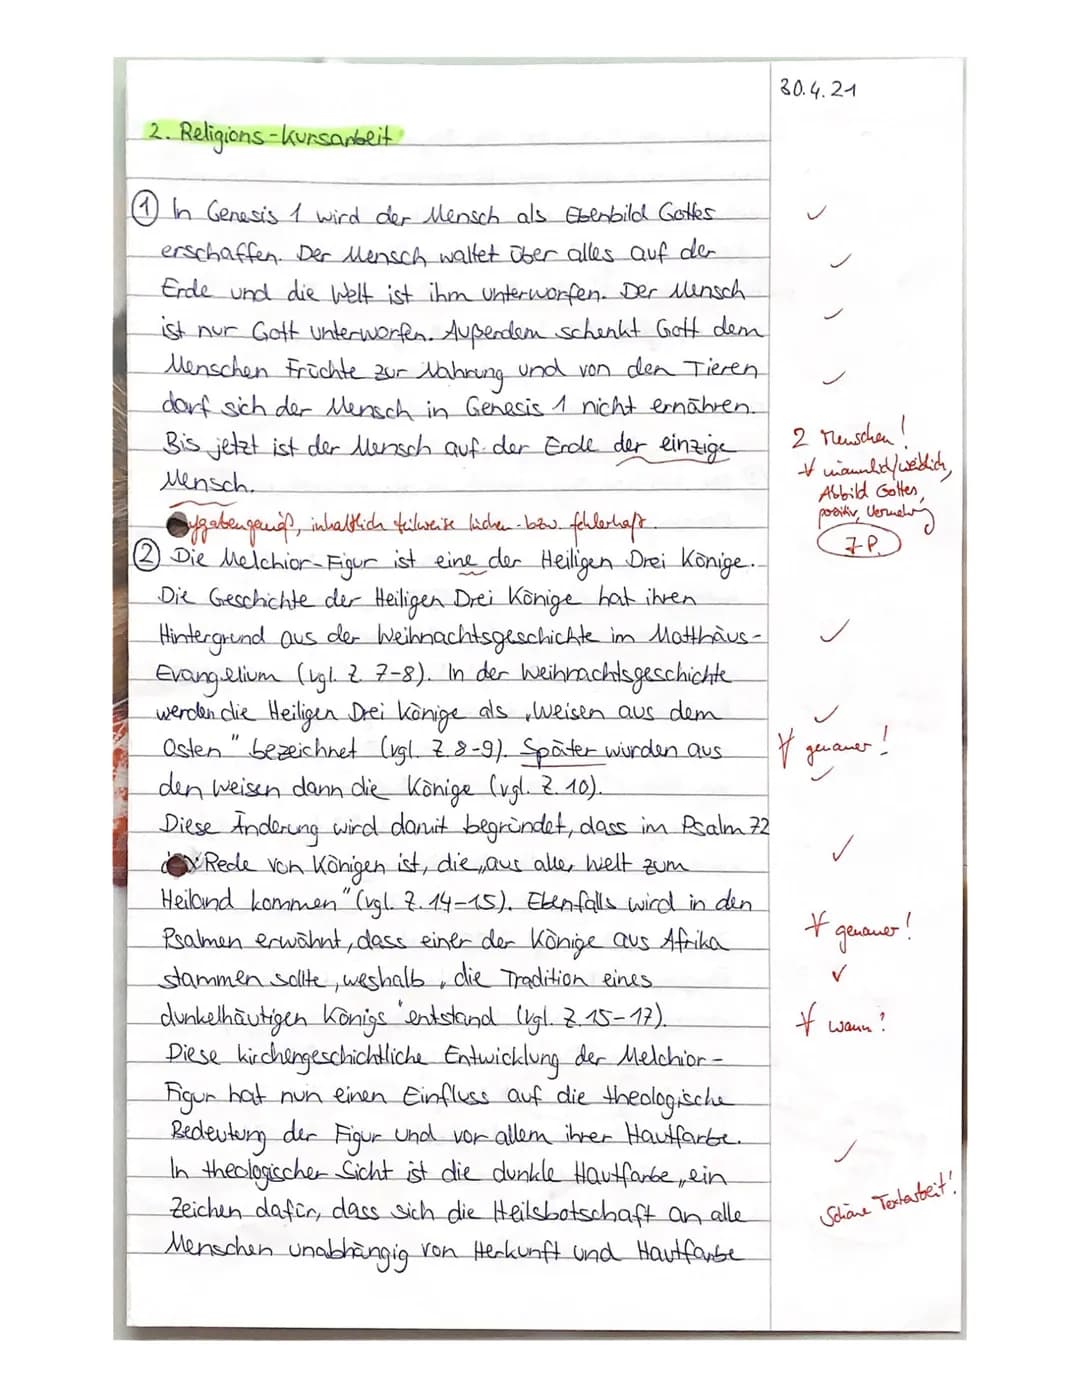 30.4.21
2. Religions-Kursarbeit
① In Genesis 1 wird der Mensch als Ebenbild Gottes
erschaffen. Der Mensch waltet über alles auf der
Erde und die Welt ist ihm unterworfen. Der Mensch
ist nur Gott unterworfen. Außerdem schenkt Gott dem
Menschen Früchte zur Nahrung und von den Tieren
darf sich der Mensch in Genesis 1 nicht ernähren.
Bis jetzt ist der Mensch auf der Erde der einzige
Mensch.
2 Menschen!
männlich/weiblich,
Abbild Gottes,
positiv, Vermehrg
7 P.
inhaltlich teilweise lücken- bzw. fehlerhaft.
② Die Melchior-Figur ist eine der Heiligen Drei Könige.
Die Geschichte der Heiligen Drei Könige hat ihren
Hintergrund aus der Weihnachtsgeschichte im Matthäus-
Evangelium (vgl. Z. 7-8). In der Weihnachtsgeschichte
werden die Heiligen Drei Könige als „Weisen aus dem
Osten" bezeichnet (vgl. Z. 8-9). Später wurden aus
genauer!
den Weisen dann die Könige (vgl. Z. 10).
Diese Änderung wird damit begründet, dass im Psalm 72
Rede von Königen ist, die „aus aller Welt zum
Heiland kommen" (vgl. Z. 14-15). Ebenfalls wird in den
Psalmen erwähnt, dass einer der Könige aus Afrika
genauer!
stammen sollte, weshalb „die Tradition eines
dunkelhäutigen Königs" entstand (vgl. Z. 15-17).
wann?
Diese kirchengeschichtliche Entwicklung der Melchior-
Figur hat nun einen Einfluss auf die theologische
Bedeutung der Figur und vor allem ihrer Hautfarbe.
In theologischer Sicht ist die dunkle Hautfarbe „ein
Zeichen dafür, dass sich die Heilsbotschaft an alle
Schöne Textarbeit!
Menschen unabhängig von Herkunft und Hautfarbe